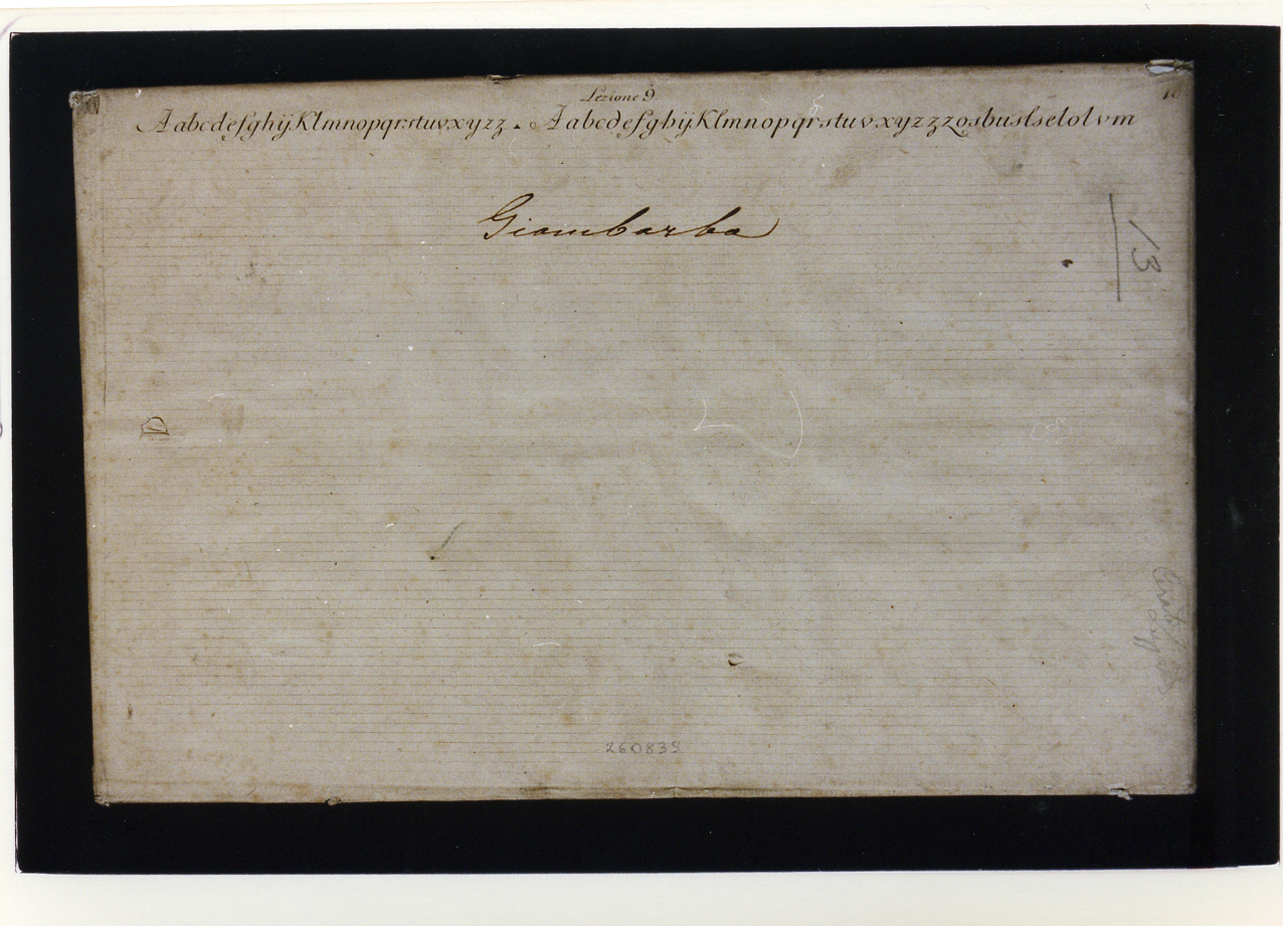 Lezione 9
10
AabcdefghijKlmnopqrstuvxyzz. AabcdefghijKlmnopqrstuvxyzzzosbuslselolvm
Giambarba
13
D
260839